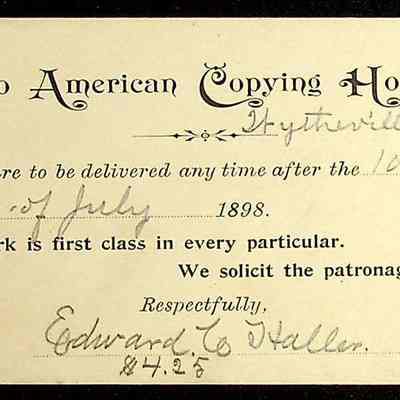 o American Copying Ho
Wytheville
re to be delivered any time after the 10
of July 1898.
rk is first class in every particular.
We solicit the patronag
Respectfully,
Edward. Co Haller.
$4.25